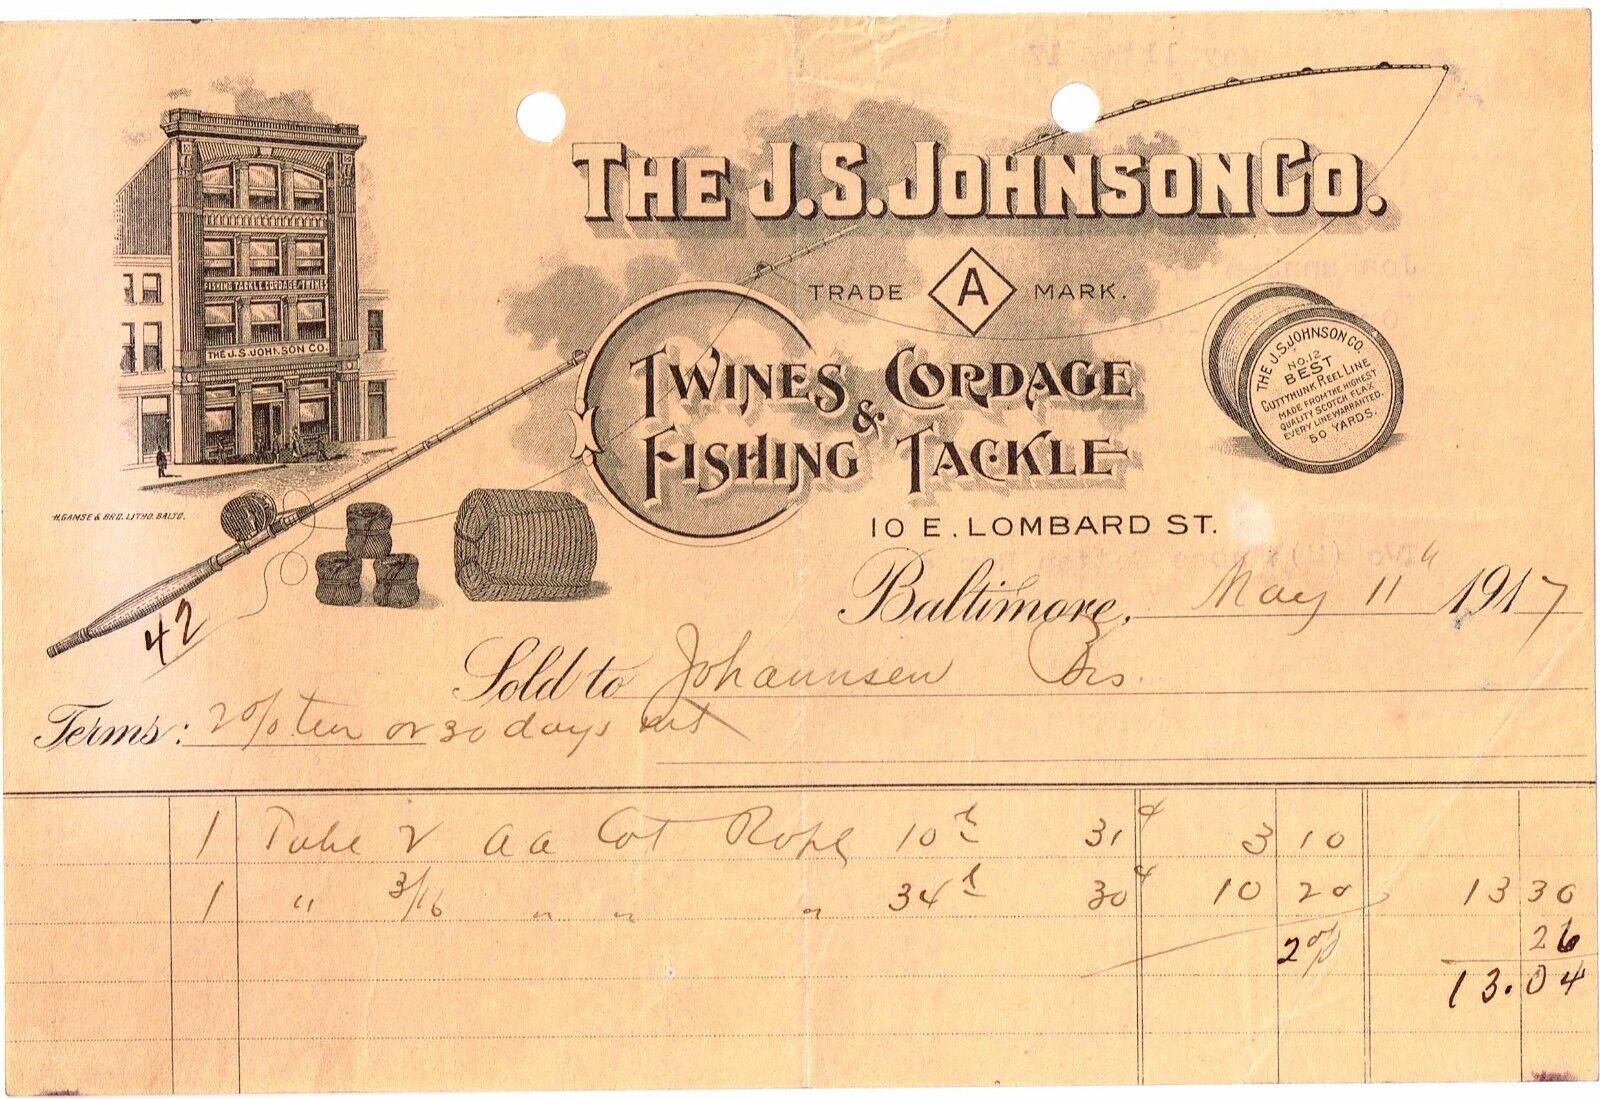 THE J.S. JOHNSON CO.
TRADE A MARK.
TWINES & CORDAGE
FISHING TACKLE
10 E. LOMBARD ST.
FISHING TACKLE CORDAGE TWINES
THE J.S. JOHNSON CO.
H. GAMSE & BRO. LITHO. BALTO.
THE J.S. JOHNSON CO.
NO. 12
BEST
CUTTYHUNK REEL LINE
MADE FROM THE HIGHEST
QUALITY SCOTCH FLAX
EVERY LINE WARRANTED.
50 YARDS.
42
Baltimore, May 11th 1917
Sold to Johannsen Bros.
Terms: 2% ten or 30 days net
1 Tube 2 aa Cot Rope 10 lb 31¢ 3 10
1 " 3/16 " " " 34 lb 30¢ 10 20 13 30
2% 26
13.04